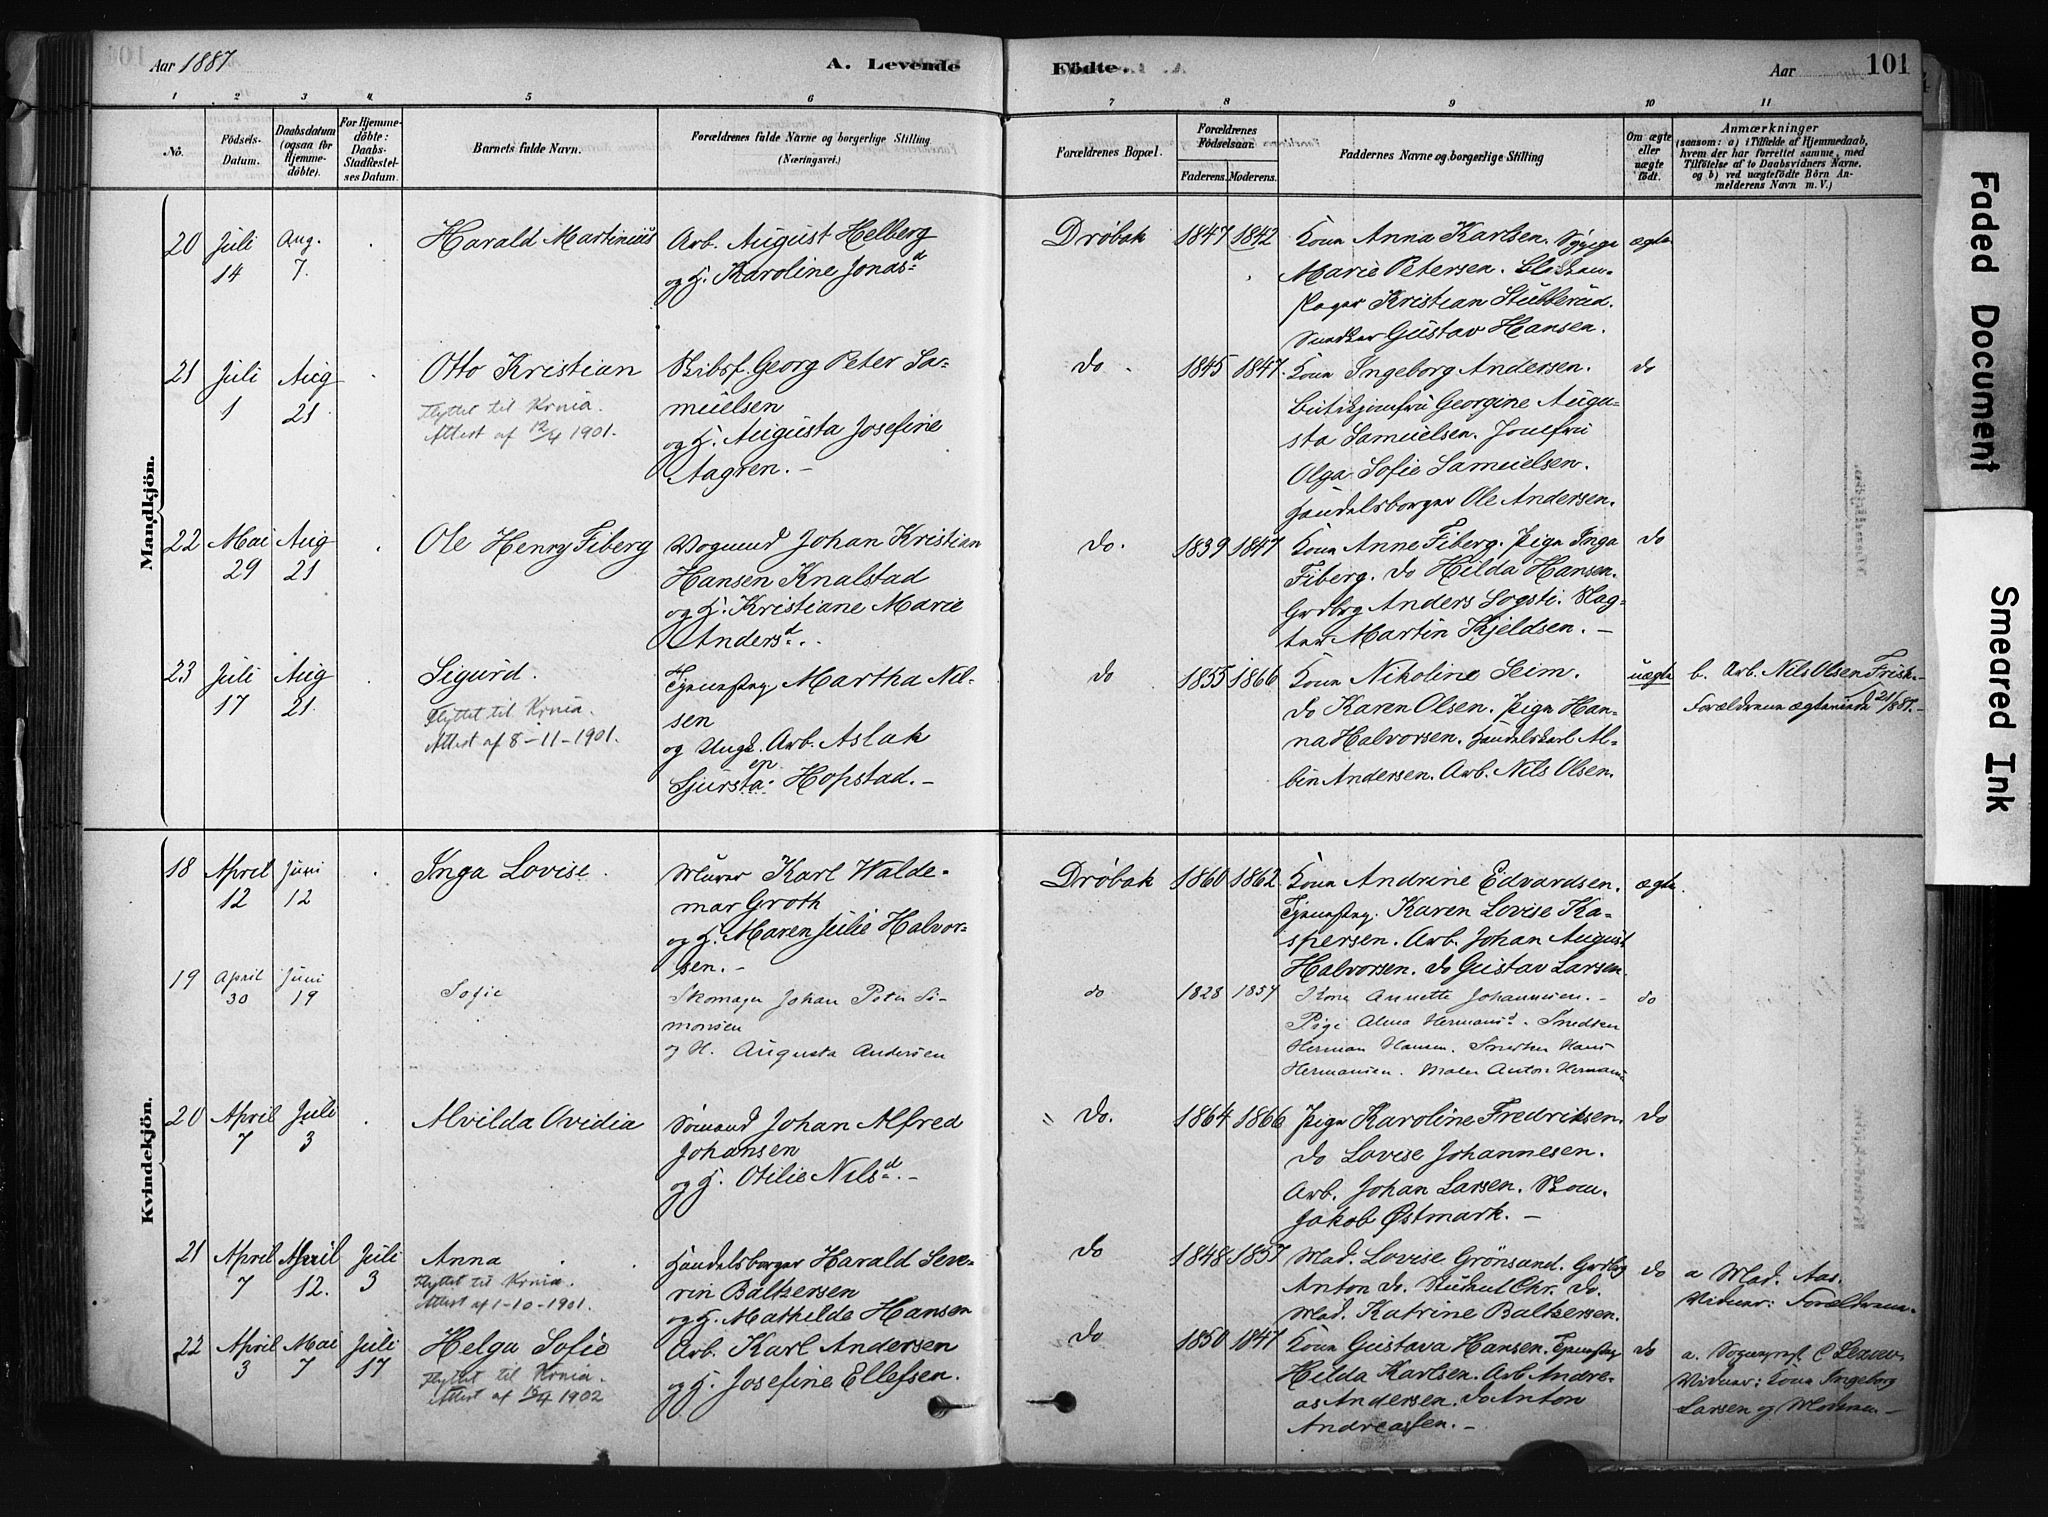 Aar 1887
A. Levende
Födte.
Aar
101
1 2 3 4 5 6 7 8 9 10 11
No.
Födsels-
Datum.
Daabsdatum
(ogsaa for
Hjemme-
döbte).
For Hjemme-
döbte:
Daabs-
Stadfæstel-
ses Datum.
Barnets fulde Navn.
Forældrenes fulde Navne og borgerlige Stilling
(Næringsvei.)
Forældrenes Bopæl.
Forældrenes
Födselsaar.
Faderens. Moderens.
Faddernes Navne og borgerlige Stilling
Om ægte
eller
uægte
födt.
Anmærkninger
(saasom: a) i Tilfælde af Hjemmedaab,
hvem der har forrettet samme, med
Tilföielse af to Daabsvidners Navne,
og b) ved uægtefödte Börn An-
melderens Navn m. V.)
Mandkjön.
20 Juli 14 Aug. 7.
Harald Martinius
Arb. August Helberg
og H. Karoline Jonasd
Drøbak 1847 1842
Kone Anna Karlsen.
Marie Petersen.
Kristian Stubberud.
Snedker Gustav Hansen.
ægte
21 Juli 1 Aug 21
Otto Kristian
Flyttet til Krnia.
Attest af 12/4 1901.
Skibsf. Georg Peter Sa-
muelsen
og H. Augusta Josefine
Aagren. –
do. 1845 1847
Kone Ingeborg Andersen.
Butikjomfru Georgine Augu-
sta Samuelsen. Jomfru
Olga Sofie Samuelsen.
Handelsborger Ole Andersen.
do
22 Mai 29 Aug 21
Ole Henry Fiberg
Vognmd Johan Kristian
Hansen Knalstad
og H. Kristiane Marie
Andersd.
do. 1839 1847
Kone Anne Fiberg. Pige Inga
Fiberg. do Hilda Hansen.
Grdbrg Anders Sogsti. Slag-
ter Martin Kjeldsen. –
do
23 Juli 17 Aug 21
Sigurd.
Flyttet til Krnia.
Attest af 8-11-1901.
Tjenestpg Martha Nil-
sen
og Ungk. Arb. Aslak
Sjursen Hopstad. –
do 1855 1866
Kone Nikoline Seim.
do Karen Olsen. Pige Han-
na Halvorsen. Handelskarl Al-
bin Andersen. Arb. Nils Olsen.
uægte
b. Arb. Nils Olsen Frisk.
Forældrene ægteviede 21/8 87. –
Kvindekjön.
18 April 12 Juni 12
Inga Lovise.
Murer Karl Walde-
mar Groth
og H. Maren Julie Halvor-
sen. –
Drøbak 1860 1862
Kone Andrine Edvardsen.
Tjenestpg. Karen Lovise Ka-
spersen. Arb. Johan August
Halvorsen. do Gustav Larsen.
ægte.
19 April 30 Juni 19
Sofie
Skomager Johan Peter Si-
monsen
og H. Augusta Andersen
do 1828 1854
Kone Annette Johannesen. –
Pige Alma Hermansd. Snedker
Herman Hansen. Snedker Hans
Hermansen. Maler Anton Hermans
do
20 April 7 Juli 3
Alvilda Ovidia
Sømand Johan Alfred
Johansen
og H. Otilie Nilsd. –
do. 1864 1866
Pige Karoline Fredriksen.
do Lovise Johannesen.
Arb. Johan Larsen. Skom.
Jakob Østmark. –
do
21 April 7 April 12. Juli 3
Anna
Flyttet til Krnia.
Attest af 1-10-1901.
Handelsborger Harald Seve-
rin Baltzersen
og H. Mathilde Hansen
do 1848 1857
Mad. Lovise Grønsand. Grdbrg
Anton do. Student Chr. do.
Mad. Katrine Baltzersen.
do
a Mad. Aas.
Vidner: Forældrene
22 April 3 Mai 7 Juli 17
Helga Sofie
Flyttet til Krnia.
Attest af 1902
Arb. Karl Andersen
og H. Josefine Ellefsen.
do 1850 1847
Kone Gustava Hansen. Tjenestpg
Hilda Karlsen. Arb Andre-
as Andersen. do Anton
Andreassen. –
do
a. Sogneprest C
Vidner: Kone Ingeborg
Larsen og Moderen –
Faded Document
Smeared Ink